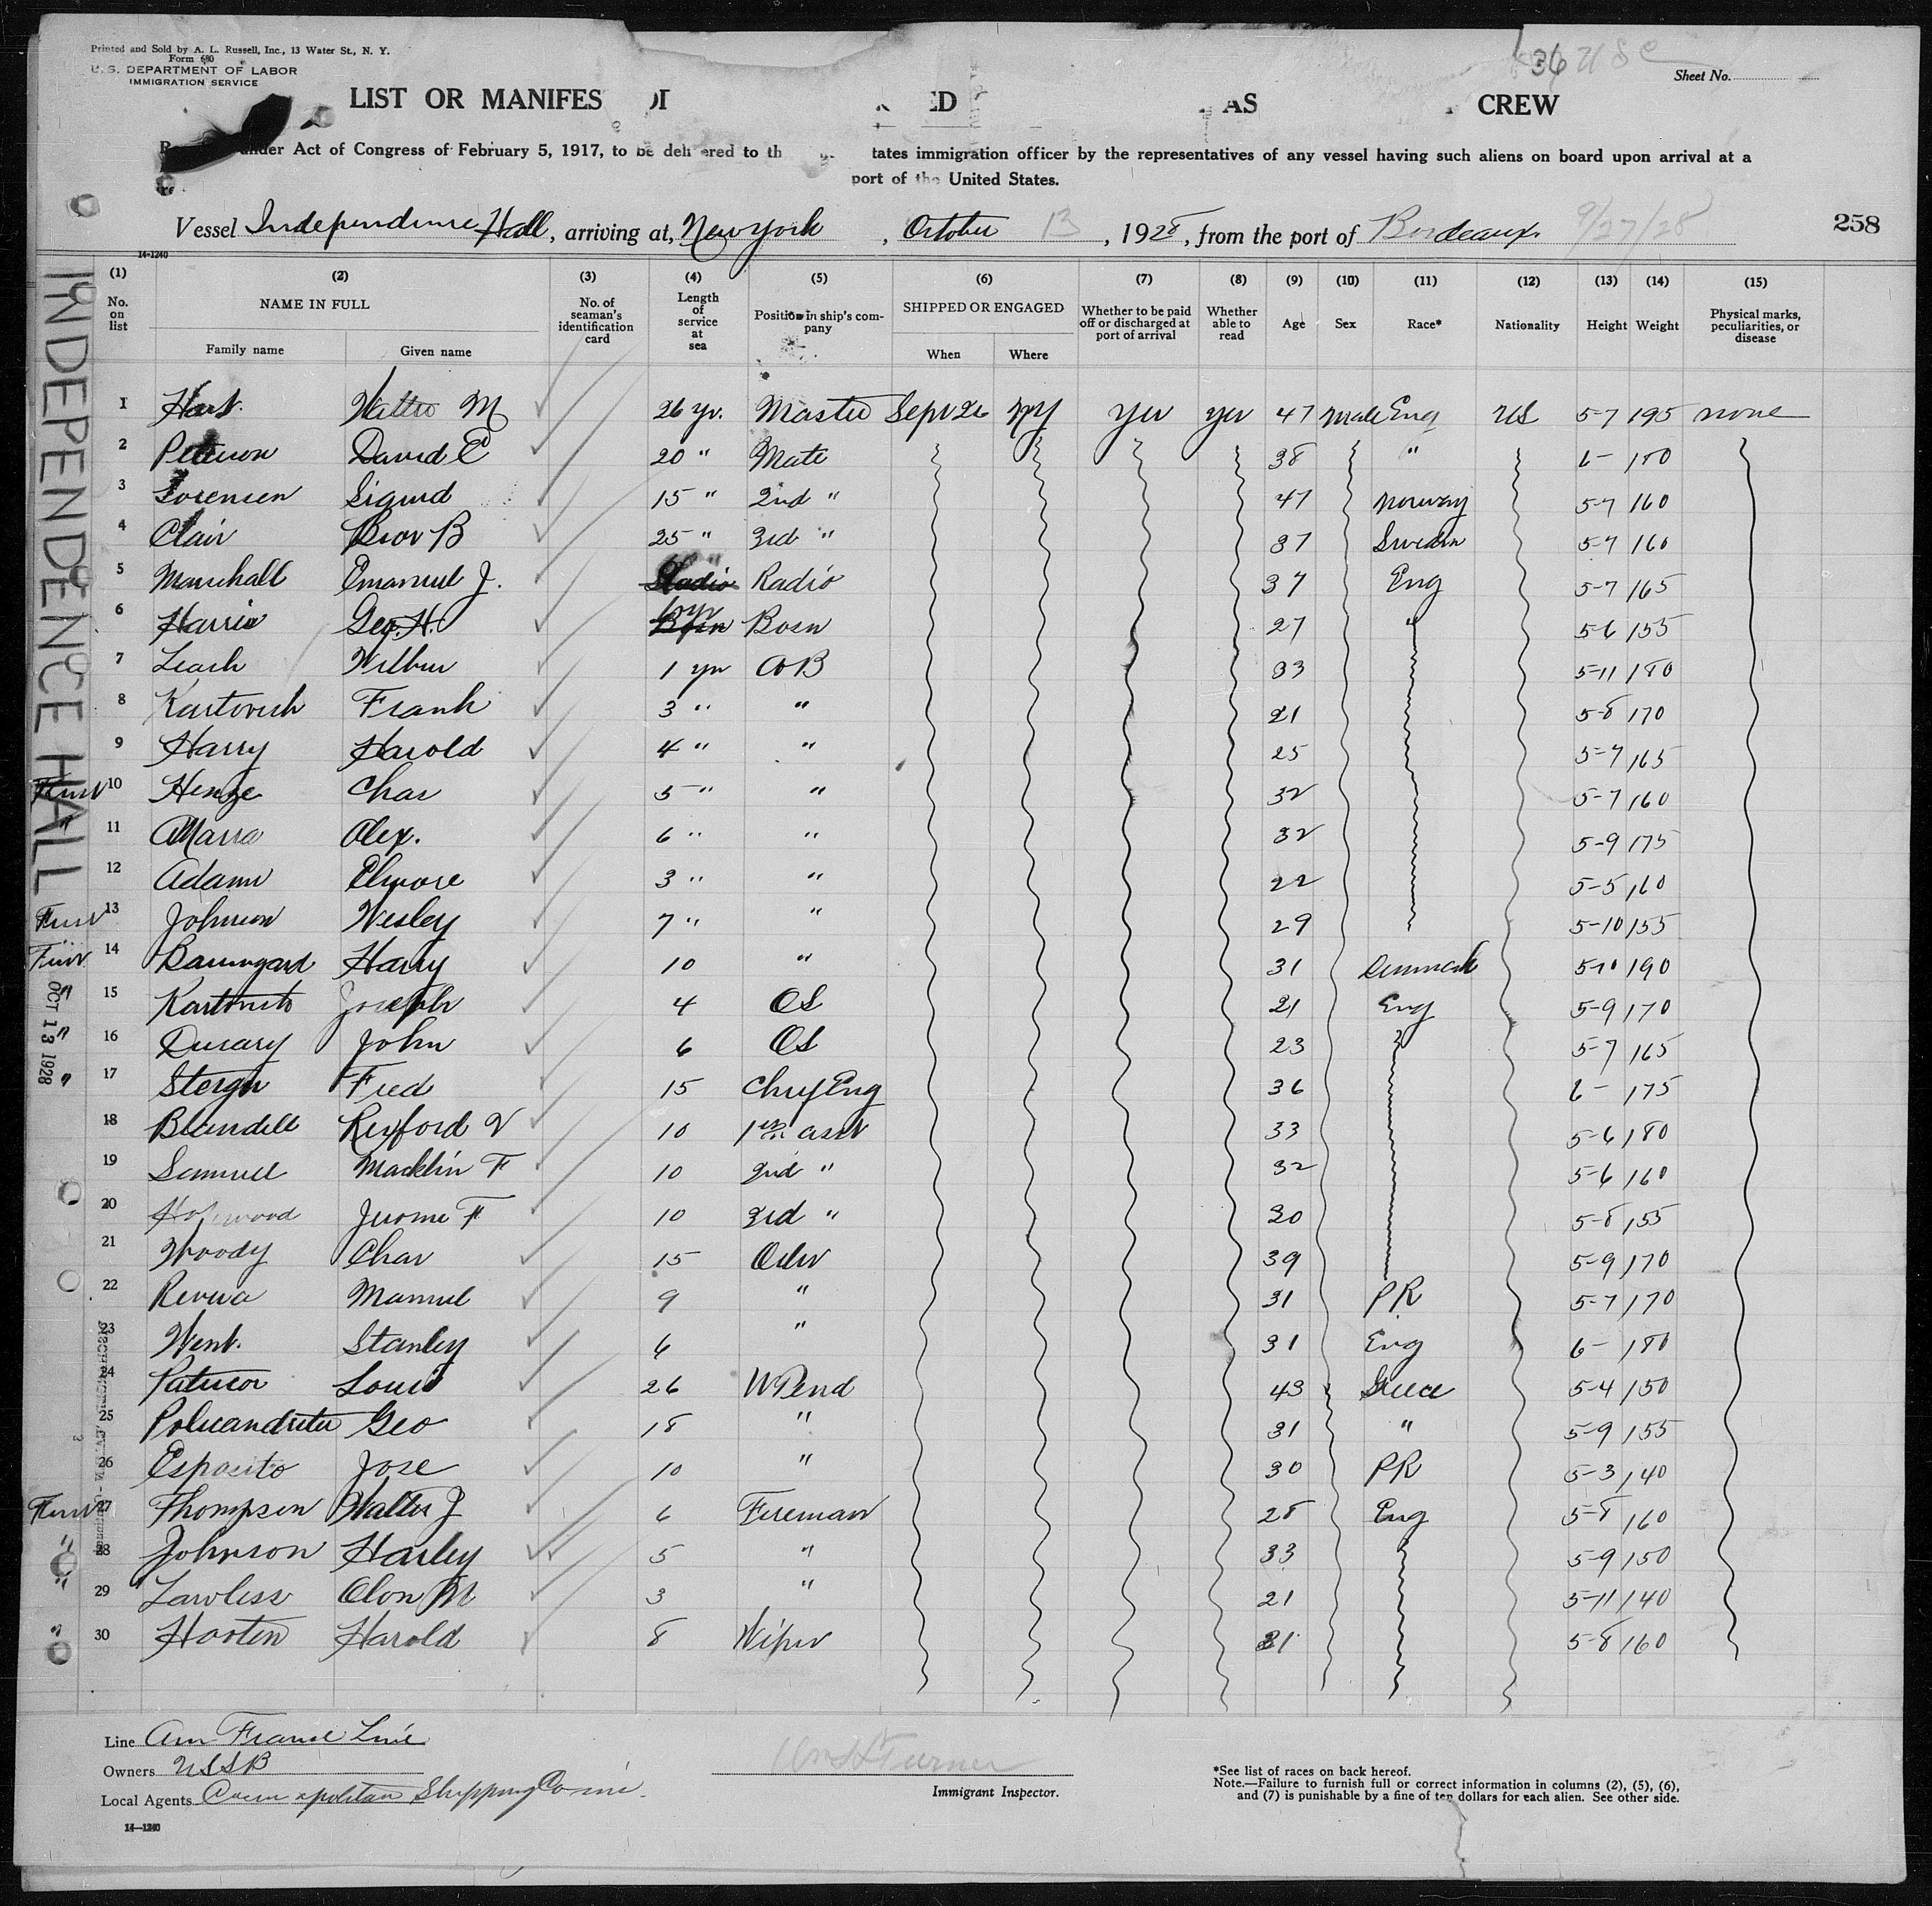 Printed and Sold by A. L. Russell, Inc., 13 Water St., N. Y.
Form 680
U. S. DEPARTMENT OF LABOR
IMMIGRATION SERVICE
36 USC
Sheet No.
LIST OR MANIFES OF ED AS CREW
under Act of Congress of February 5, 1917, to be delivered to th tates immigration officer by the representatives of any vessel having such aliens on board upon arrival at a
port of the United States.
Vessel Independence Hall, arriving at, New York, October 13, 1928, from the port of Bordeaux. 9/27/28
258
14-1240
INDEPENDENCE HALL
OCT 13 1928
(1) (2) (3) (4) (5) (6) (7) (8) (9) (10) (11) (12) (13) (14) (15)
No. on list NAME IN FULL Family name Given name No. of seaman's identification card Length of service at sea Position in ship's company SHIPPED OR ENGAGED When Where Whether to be paid off or discharged at port of arrival Whether able to read Age Sex Race* Nationality Height Weight Physical marks, peculiarities, or disease
1 Hart. Walter M 26 yr. Master Sept 26 NY Yes yes 47 Male Eng US 5-7 195 none
2 Peterson David E 20 " Mate 38 " 6- 180
3 Sorensen Sigurd 15 " 2nd " 47 Norway 5-7 160
4 Clair Bror B 25 " 3rd " 37 Sweden 5-7 160
5 Marshall Emanuel J. Radio Radio 37 Eng 5-7 165
6 Harris Geo. H. 6 yr Bosn Bosn 27 " 5-6 155
7 Leach Wilbur 1 yr AB 33 5-11 180
8 Kartovich Frank 3 " " 21 5-8 170
9 Harry Harold 4 " " 25 5-7 165
10 Henge Chas 5 " " 32 5-7 160
11 Marra Alex. 6 " " 32 5-9 175
12 Adams Elmore 3 " " 22 5-5 160
13 Johnson Wesley 7 " " 29 5-10 155
14 Baumgard Harry 10 " 31 Denmark 5-10 190
15 Joseph 4 OS 21 Eng 5-9 170
16 John 6 OS 23 5-7 165
17 Fred 15 Chief Eng 36 6- 175
18 Blundell Rexford V 10 1st asst 33 5-6 180
19 Samuel Macklin F 10 2nd " 32 5-6 160
20 Jerome F 10 3rd " 30 5-8 155
21 Woody Chas 15 Oiler 39 5-9 170
22 Rivera Manuel 9 " 31 PR 5-7 170
23 Went. Stanley 6 " 31 Eng 6- 180
24 Louis 26 W Tend 43 Greece 5-4 150
25 Geo 18 " 31 " 5-9 155
26 Esposito Jose 10 " 30 PR 5-3 140
27 Thompson Walter J 6 Fireman 28 Eng 5-8 160
28 Johnson Harley 5 " 33 5-9 150
29 Lawless Olon M 3 " 21 5-11 140
30 Hooten Harold 8 Wiper 21 5-8 160
Line Am France Line
Owners USSB
Local Agents Cosmopolitan Shipping Co inc.
Turner
Immigrant Inspector.
*See list of races on back hereof.
Note.—Failure to furnish full or correct information in columns (2), (5), (6),
and (7) is punishable by a fine of ten dollars for each alien. See other side.
14-1240